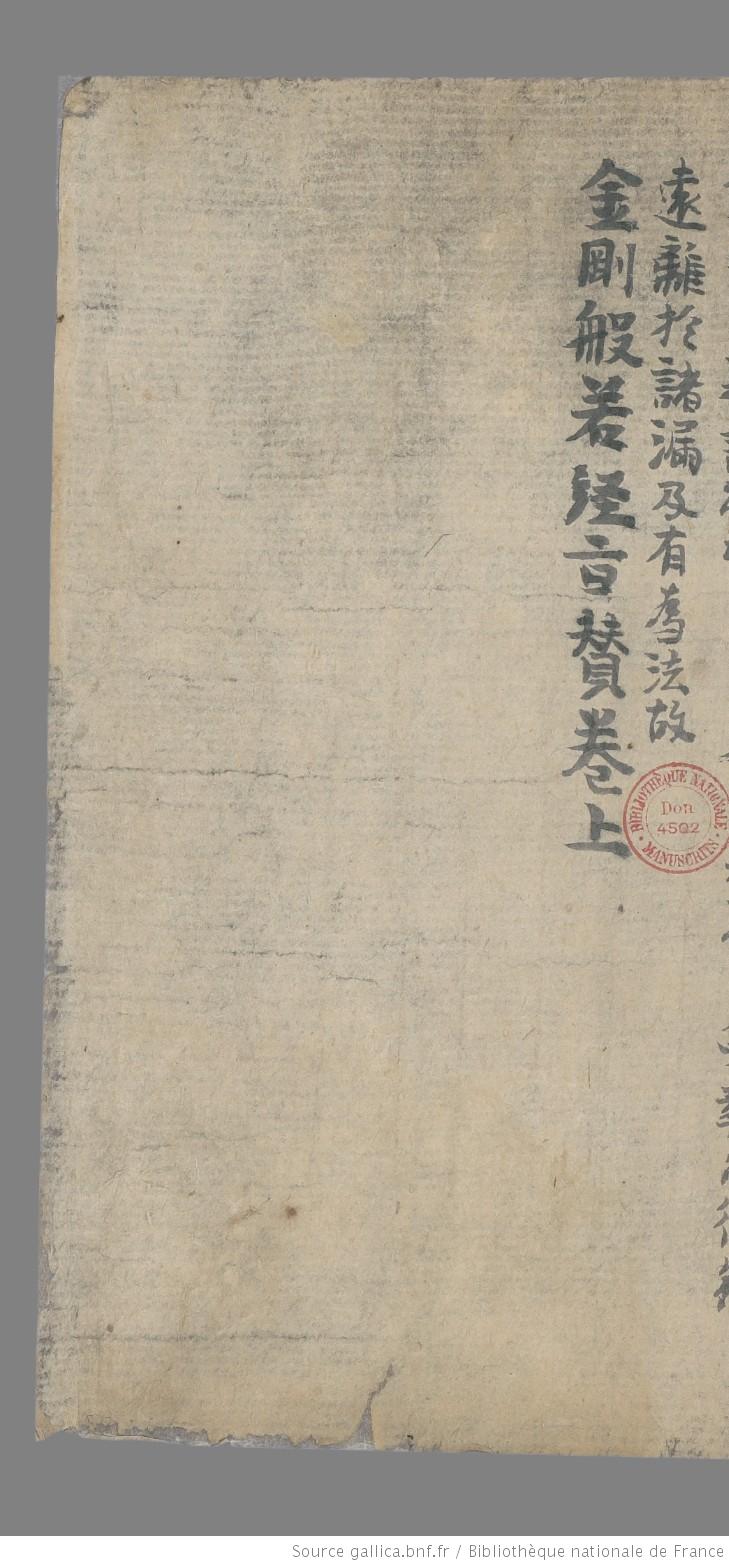 遠離於諸漏及有為法故
金剛般若經言賛卷上
BIBLIOTHÈQUE NATIONALE
Don
4502
MANUSCRITS
Source gallica.bnf.fr / Bibliothèque nationale de France